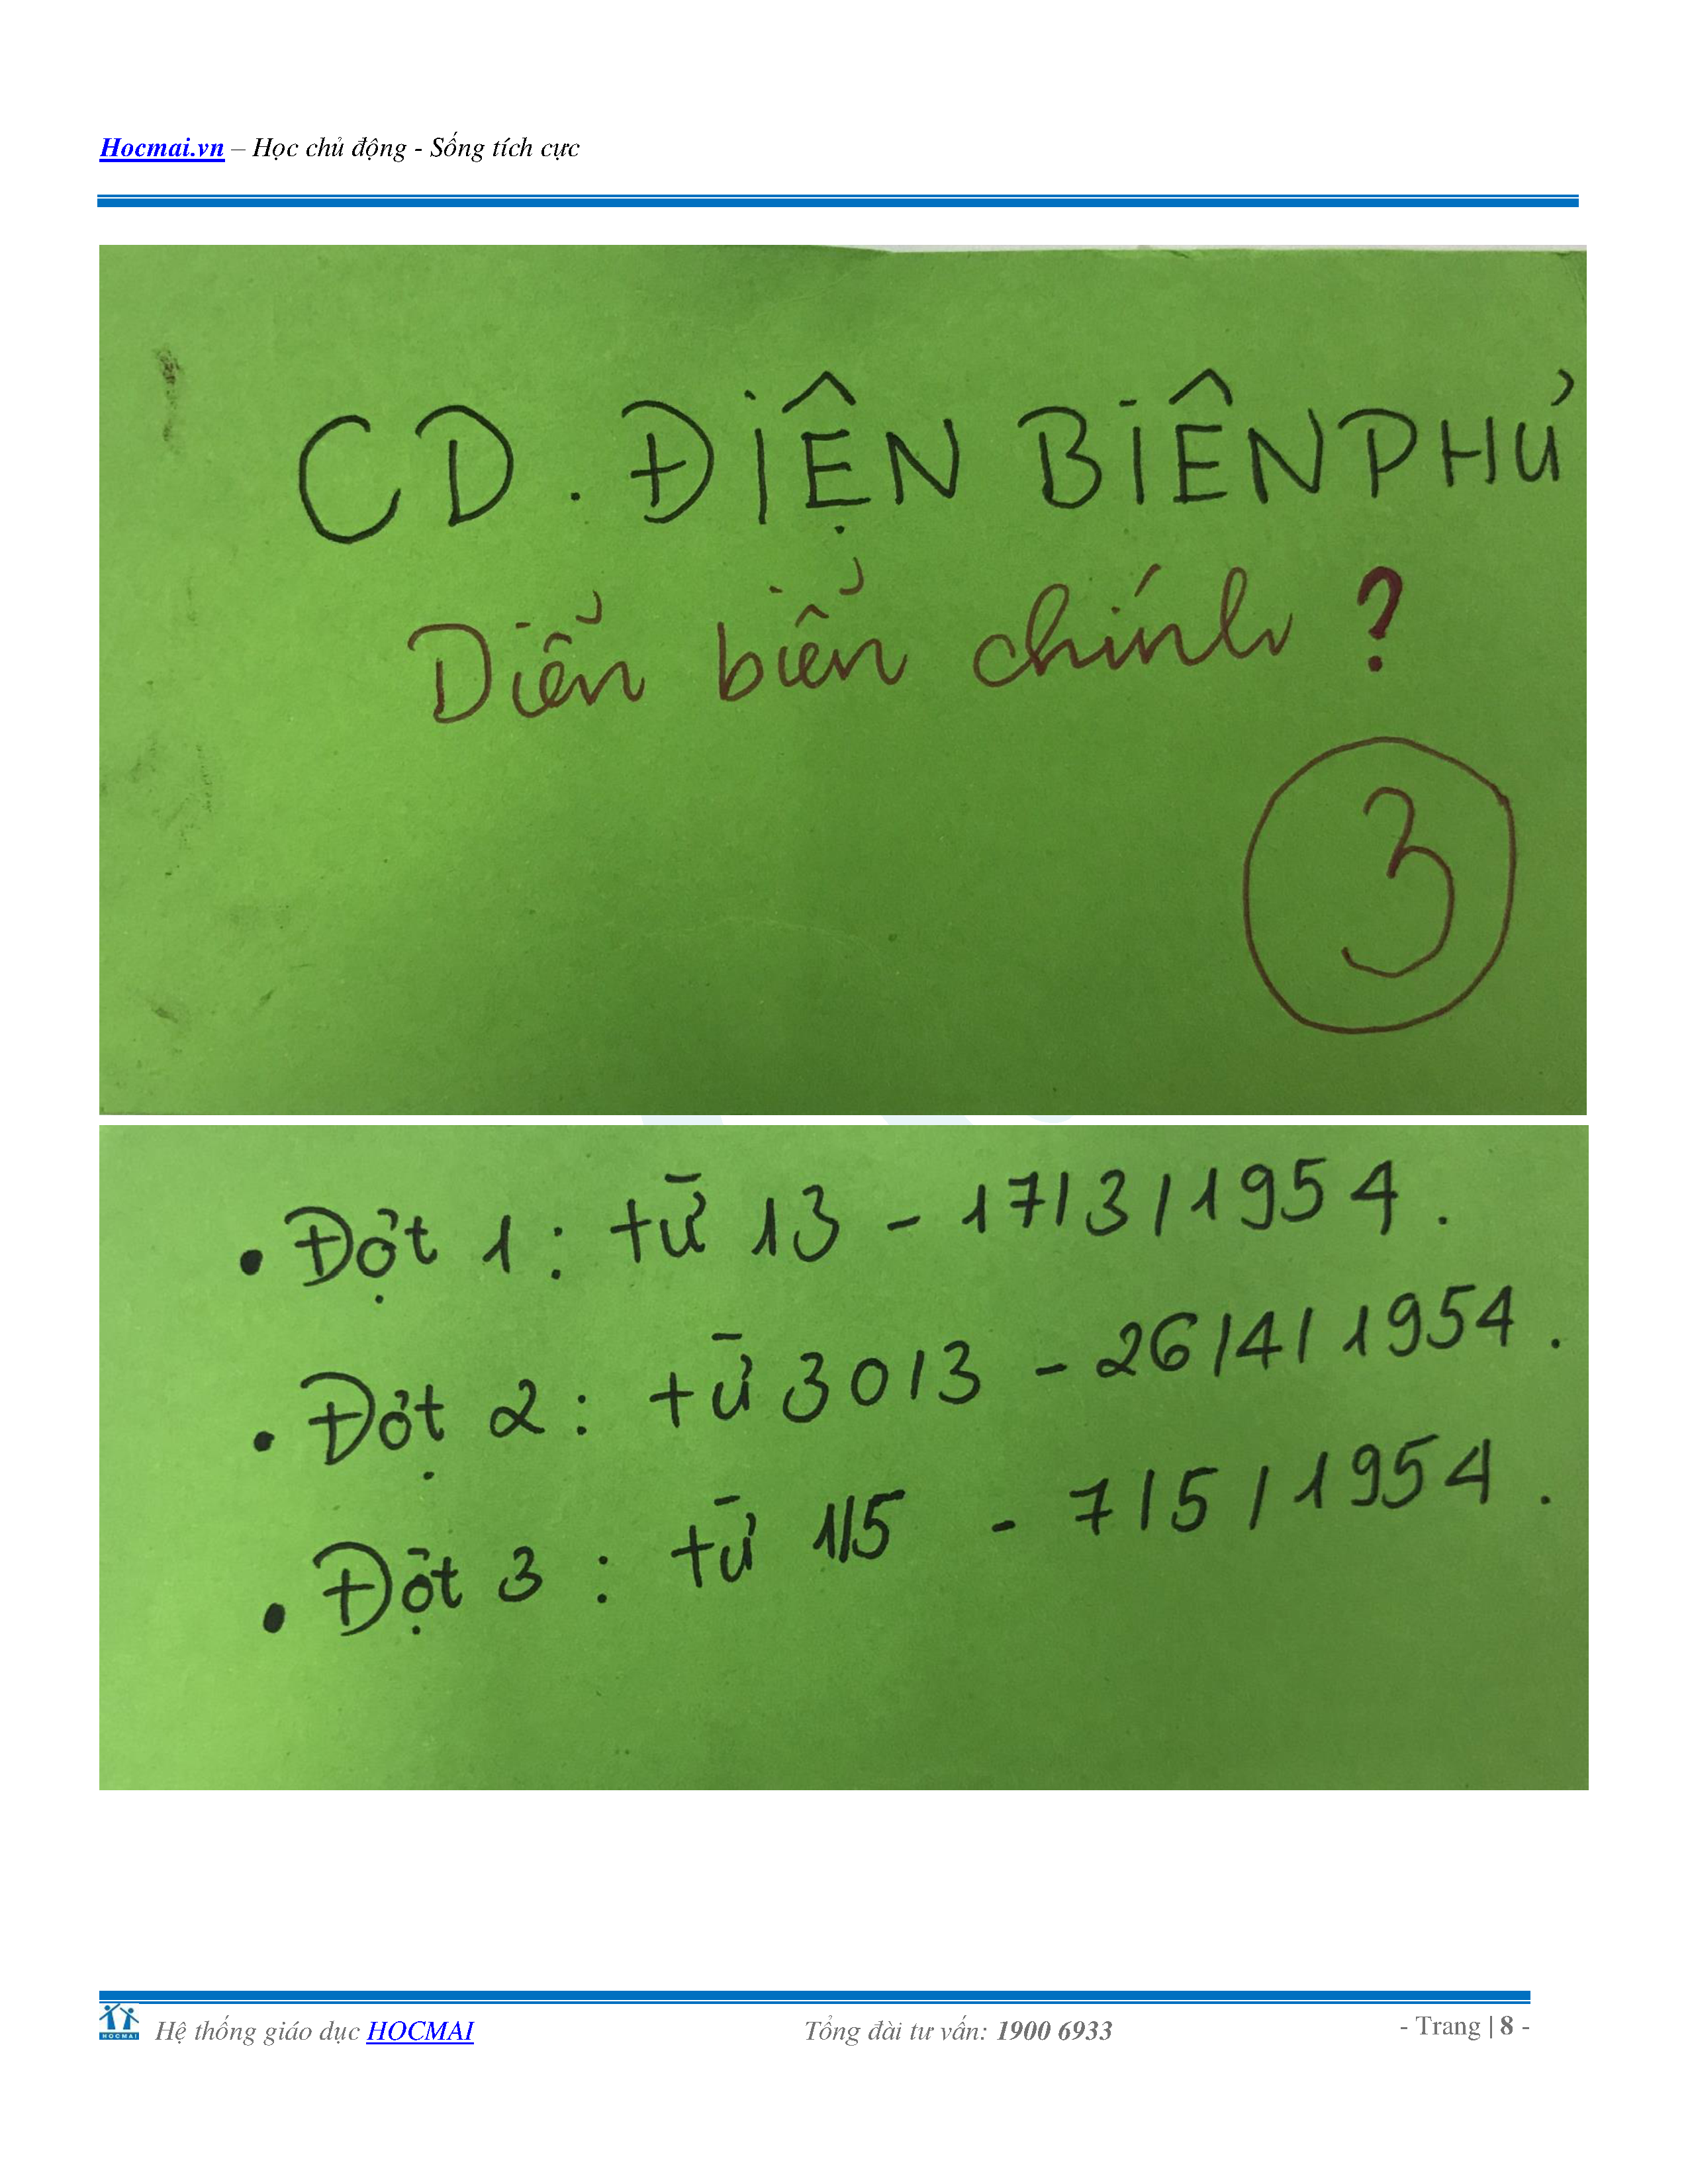 Hocmai.vn – Học chủ động - Sống tích cực
CD. ĐIỆN BIÊN PHỦ
Diễn biến chính ?
3
• Đợt 1 : từ 13 - 17/3/1954.
• Đợt 2 : từ 30/3 - 26/4/1954.
• Đợt 3 : từ 1/5 - 7/5/1954.
HOCMAI
Hệ thống giáo dục HOCMAI
Tổng đài tư vấn: 1900 6933
- Trang | 8 -